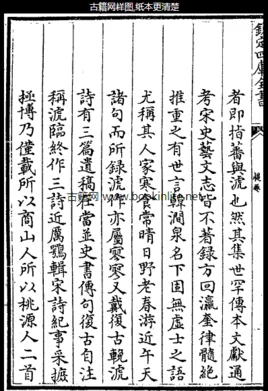 古籍网样图,纸本更清楚
欽定四庫全書
提要
者即指蕃與淲也然其集世罕傳本文獻通
考宋史藝文志皆不著録方回瀛奎律髓絶
推重之有世言韓澗泉名下固無虚士之語
尤稱其人家寒食當晴日野老春游近午天
諸句而所録淲作亦屬寥寥又戴復古輓淲
詩有三篇遺稿在當並史書傳句復古自注
稱淲臨終作三詩近厲鶚輯宋詩紀事采摭
極博乃僅載所以商山人所以桃源人二首